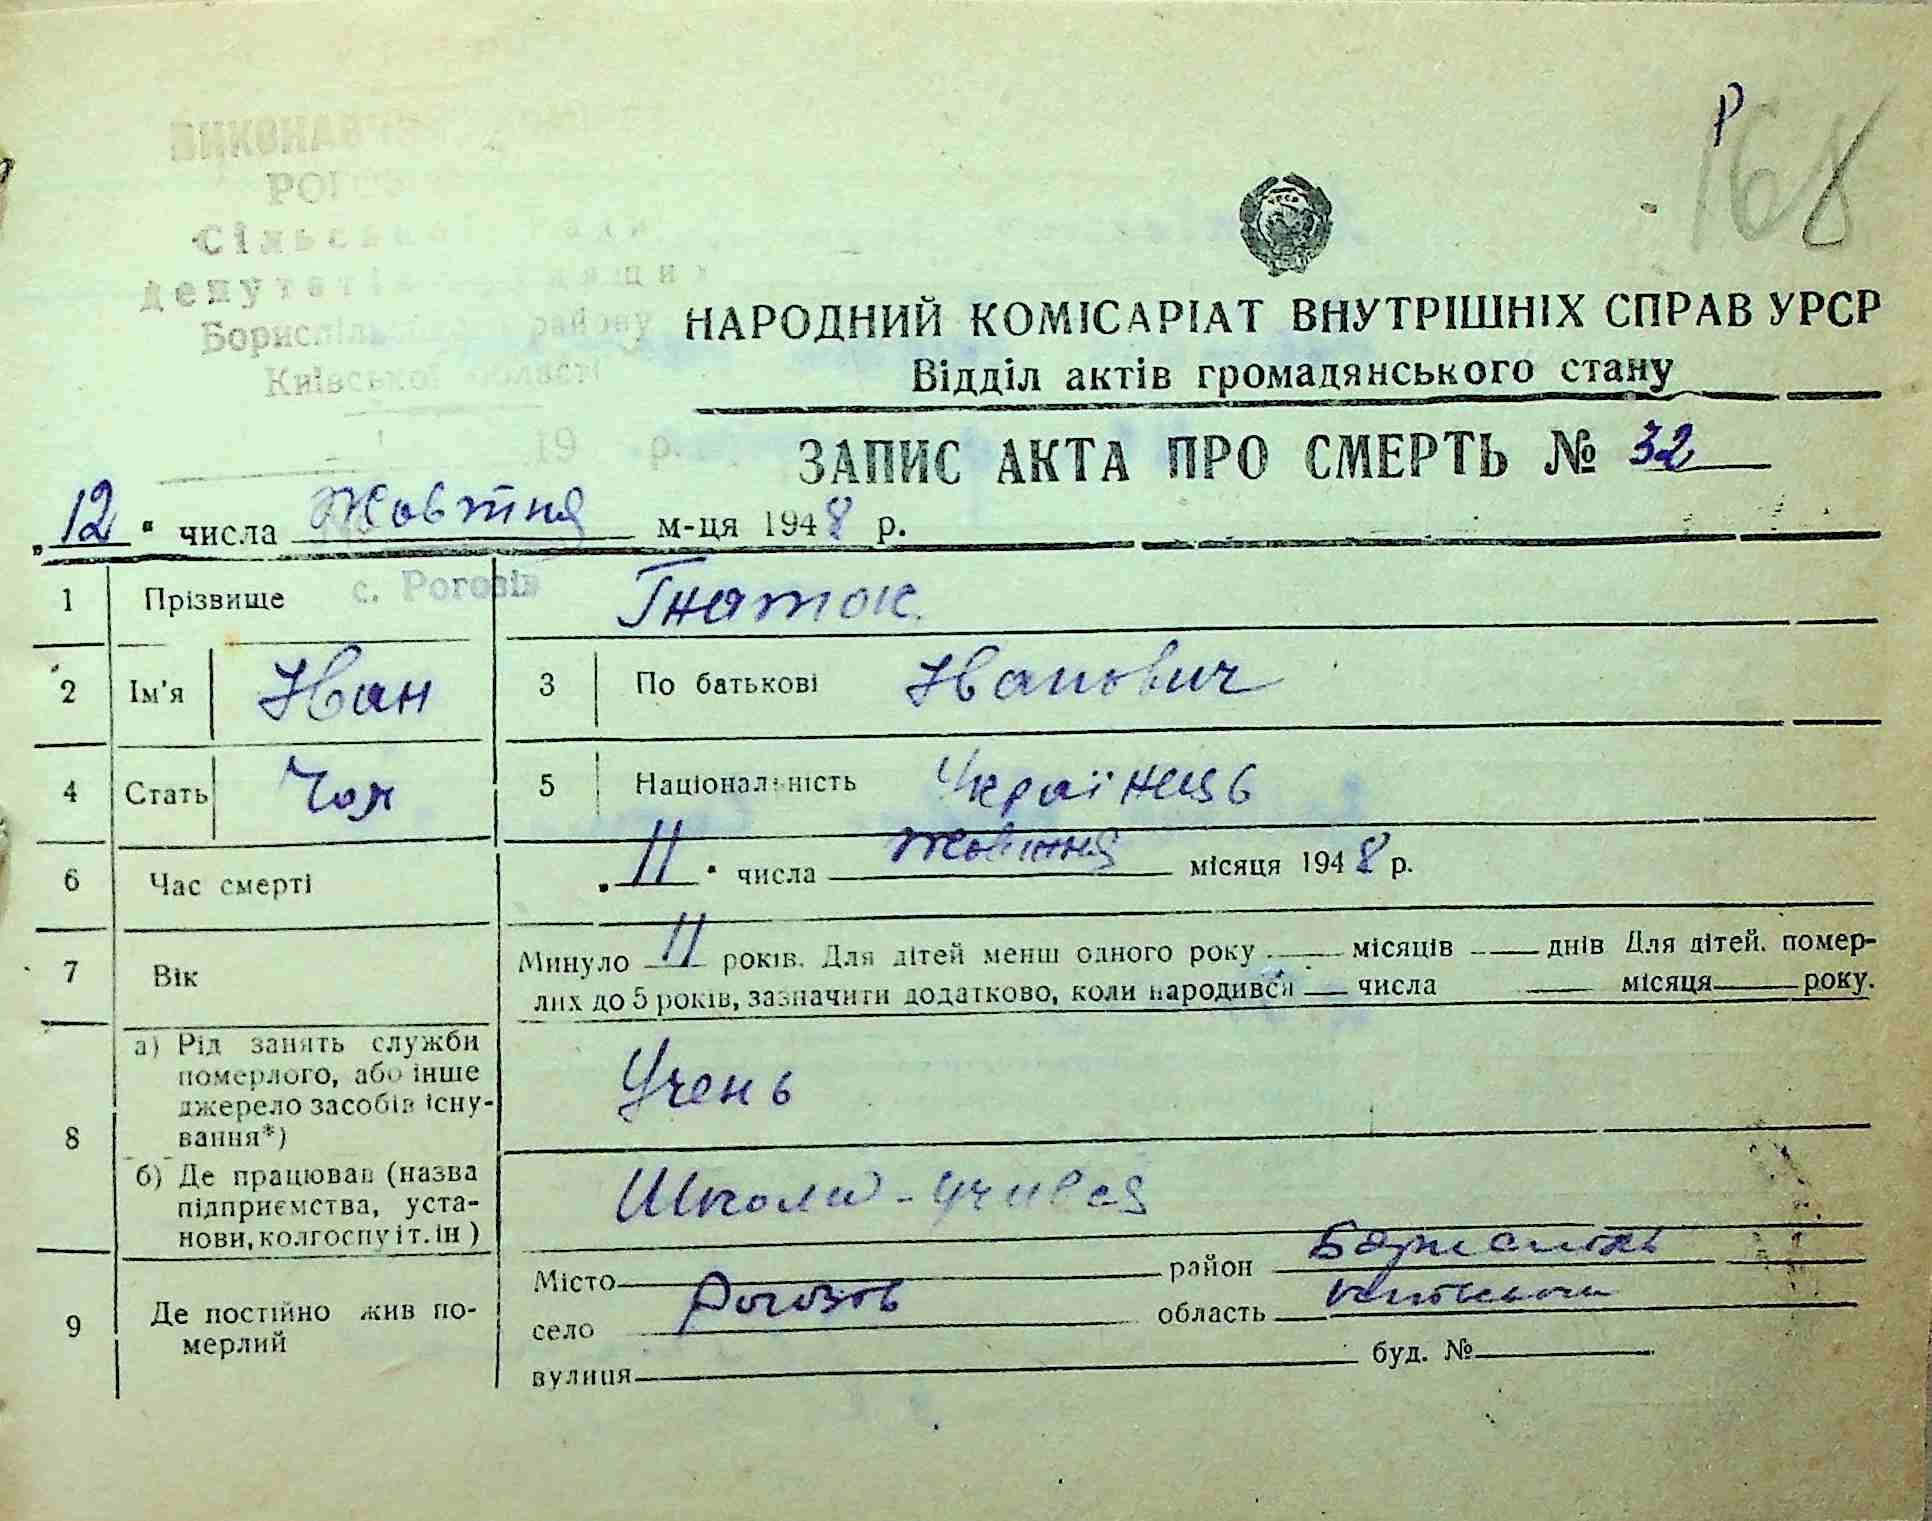 Р
168
ВИКОНАВЧ
РОГ
Сільської Ради
депутатів трудящих
Бориспільського району
Київської області
19 р.
НАРОДНИЙ КОМІСАРІАТ ВНУТРІШНІХ СПРАВ УРСР
Відділ актів громадянського стану
ЗАПИС АКТА ПРО СМЕРТЬ № 32
„12“ числа Жовтня м-ця 1948 р.
с. Рогозів
1 Прізвище Гнаток
2 Ім'я Іван 3 По батькові Іванович
4 Стать Чол 5 Національність Українець
6 Час смерті „11“ числа Жовтня місяця 1948 р.
7 Вік Минуло 11 років. Для дітей менш одного року — місяців — днів Для дітей, помер-
лих до 5 років, зазначити додатково, коли народився — числа — місяця — року.
8 а) Рід занять служби
померлого, або інше
джерело засобів існу-
вання*)
Учень
б) Де працював (назва
підприємства, уста-
нови, колгоспу і т. ін)
Школи - учився
9 Де постійно жив по-
мерлий
Місто — район Бориспіль
село Рогозов область
вулиця — буд. № —